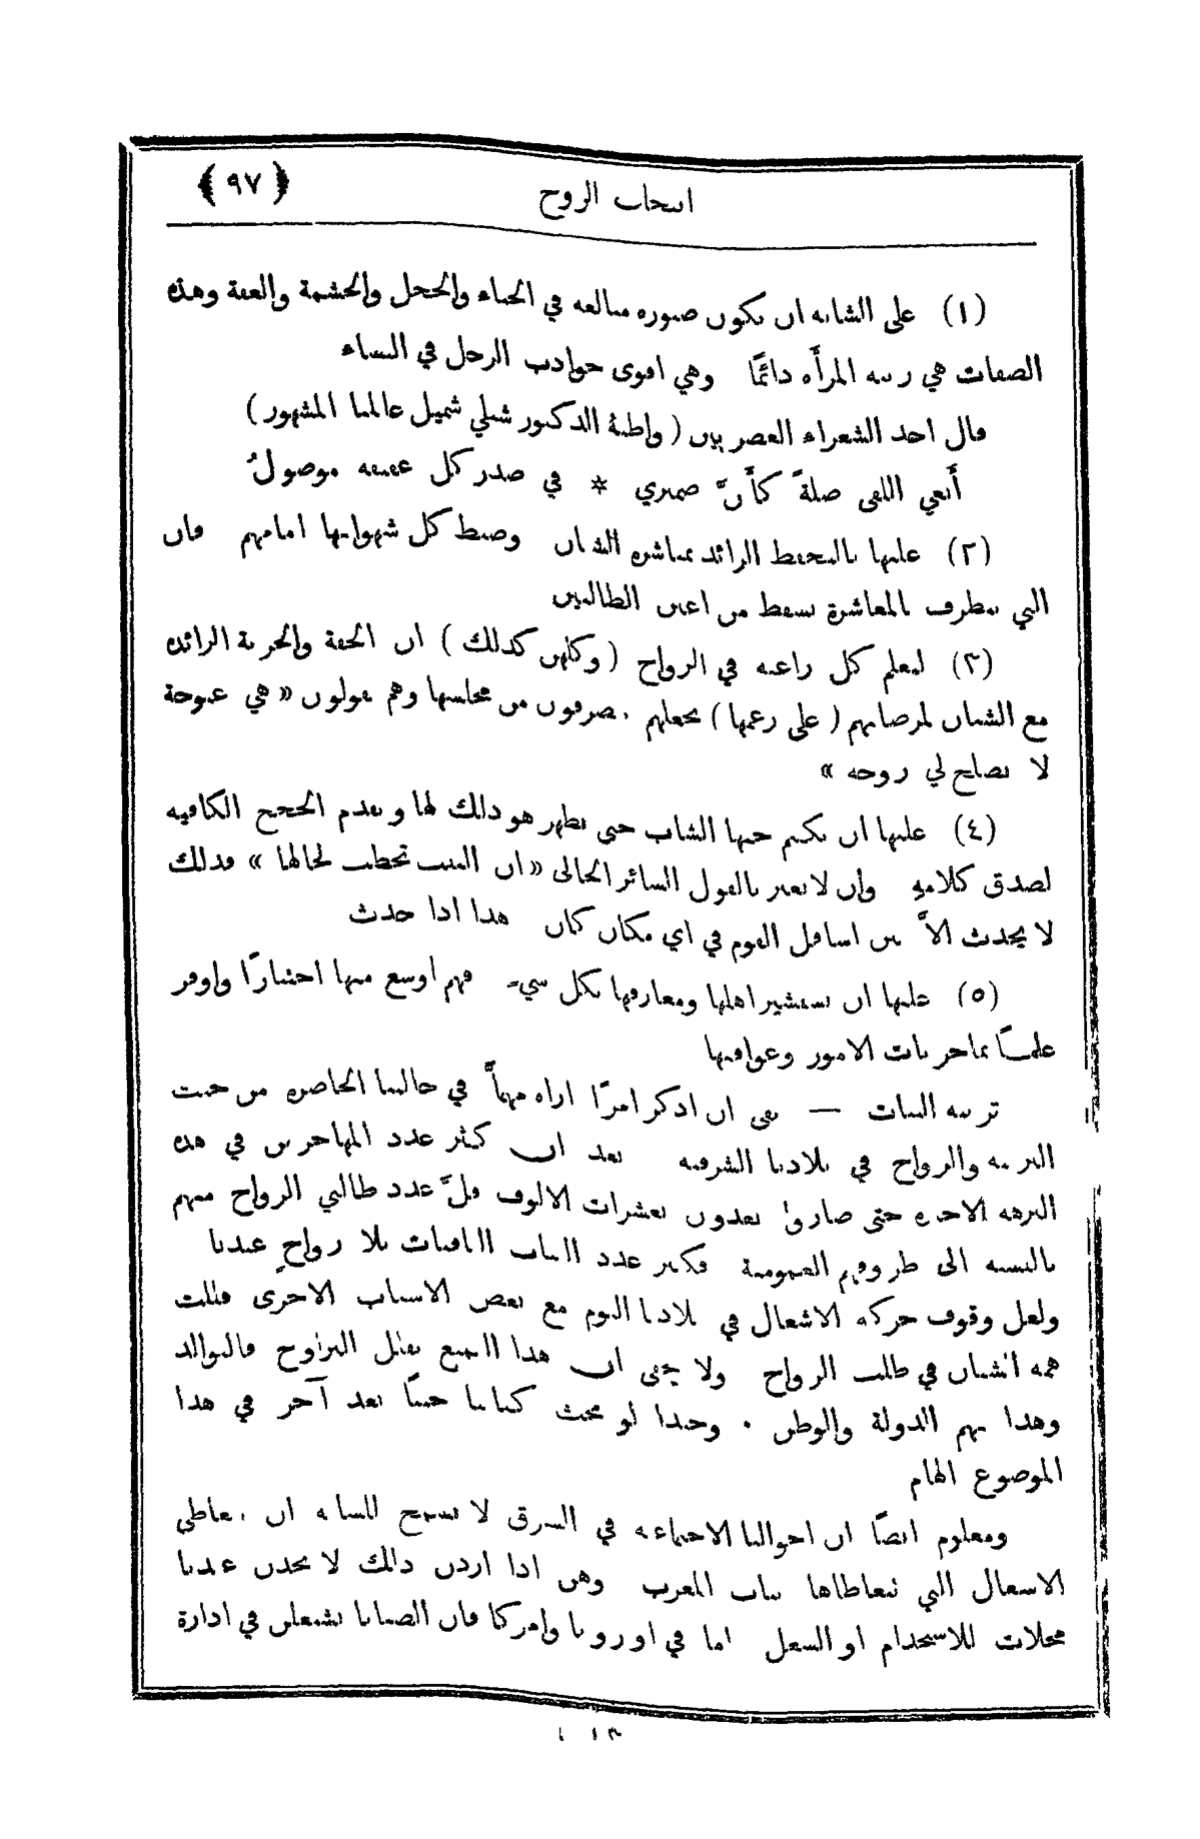 انتخاب الزوج ﴿ ٩٧ ﴾
(١) على الشابة ان تكون صبورة مبالغة في الحياء والخجل والحشمة والعفة وهذه
الصفات هي زينة المرأة دائمًا وهي اقوى جواذب الرجل في النساء
قال احد الشعراء العصريين ( واظنهُ الدكتور شبلي شميل عالمنا المشهور )
أبغي اللقى صلةً كأنَّ ضميري * في صدر كل عفيفة موصولُ
(٢) عليها بالتحفظ الزائد بمعاشرة الشبان وضبط كل شهواتها امامهم فان
التي تتطرف بالمعاشرة تسقط من اعين الطالبين
(٣) لتعلم كل راغبة في الزواج ( وكلهن كذلك ) ان الخفة والحرية الزائدة
مع الشبان لمرضاتهم ( على زعمها ) تجعلهم ينصرفون من مجلسها وهم يقولون « هي غنوجة
لا تصلح لي زوجة »
(٤) عليها ان تكتم حبها الشاب حتى يظهر هو ذلك لها ويقدم الحجج الكافية
لصدق كلامهِ وان لا تعتبر بالقول السائر الحالي « ان البنت تخطب لحالها » فذلك
لا يحدث الاَّ بين اسافل القوم في اي مكان كان هذا اذا حدث
(٥) عليها ان تستشير اهلها ومعارفها بكل شيء فهم اوسع منها اختبارًا واوفر
علمًا بماجريات الامور وعواقبها
تربية البنات — بقي ان اذكر امرًا اراه مهمًّا في حالتنا الحاضرة من حيث
التربية والزواج في بلادنا الشرقية بعد ان كثر عدد المهاجرين في هذه
البرهة الاخيرة حتى صاروا يعدون بعشرات الالوف قلَّ عدد طالبي الزواج منهم
بالنسبة الى ظروفهم العمومية فكثر عدد البنات الباقيات بلا زواجٍ عندنا
ولعل وقوف حركة الاشغال في بلادنا اليوم مع بعض الاسباب الاخرى قللت
همة الشبان في طلب الزواج ولا يخفى ان هذا الجميع يقلل التزاوج فالتوالد
وهذا يهم الدولة والوطن . وحبذا لو بحث كتابنا حينًا بعد آخر في هذا
الموضوع الهام
ومعلوم ايضًا ان احوالنا الاجتماعية في الشرق لا تسمح للشابة ان تتعاطى
الاشغال التي تتعاطاها بنات الغرب وهن اذا اردن ذلك لا يجدن عندنا
محلات للاستخدام او الشغل اما في اوروبا وامركا فان الصبايا تشتغلن في ادارة